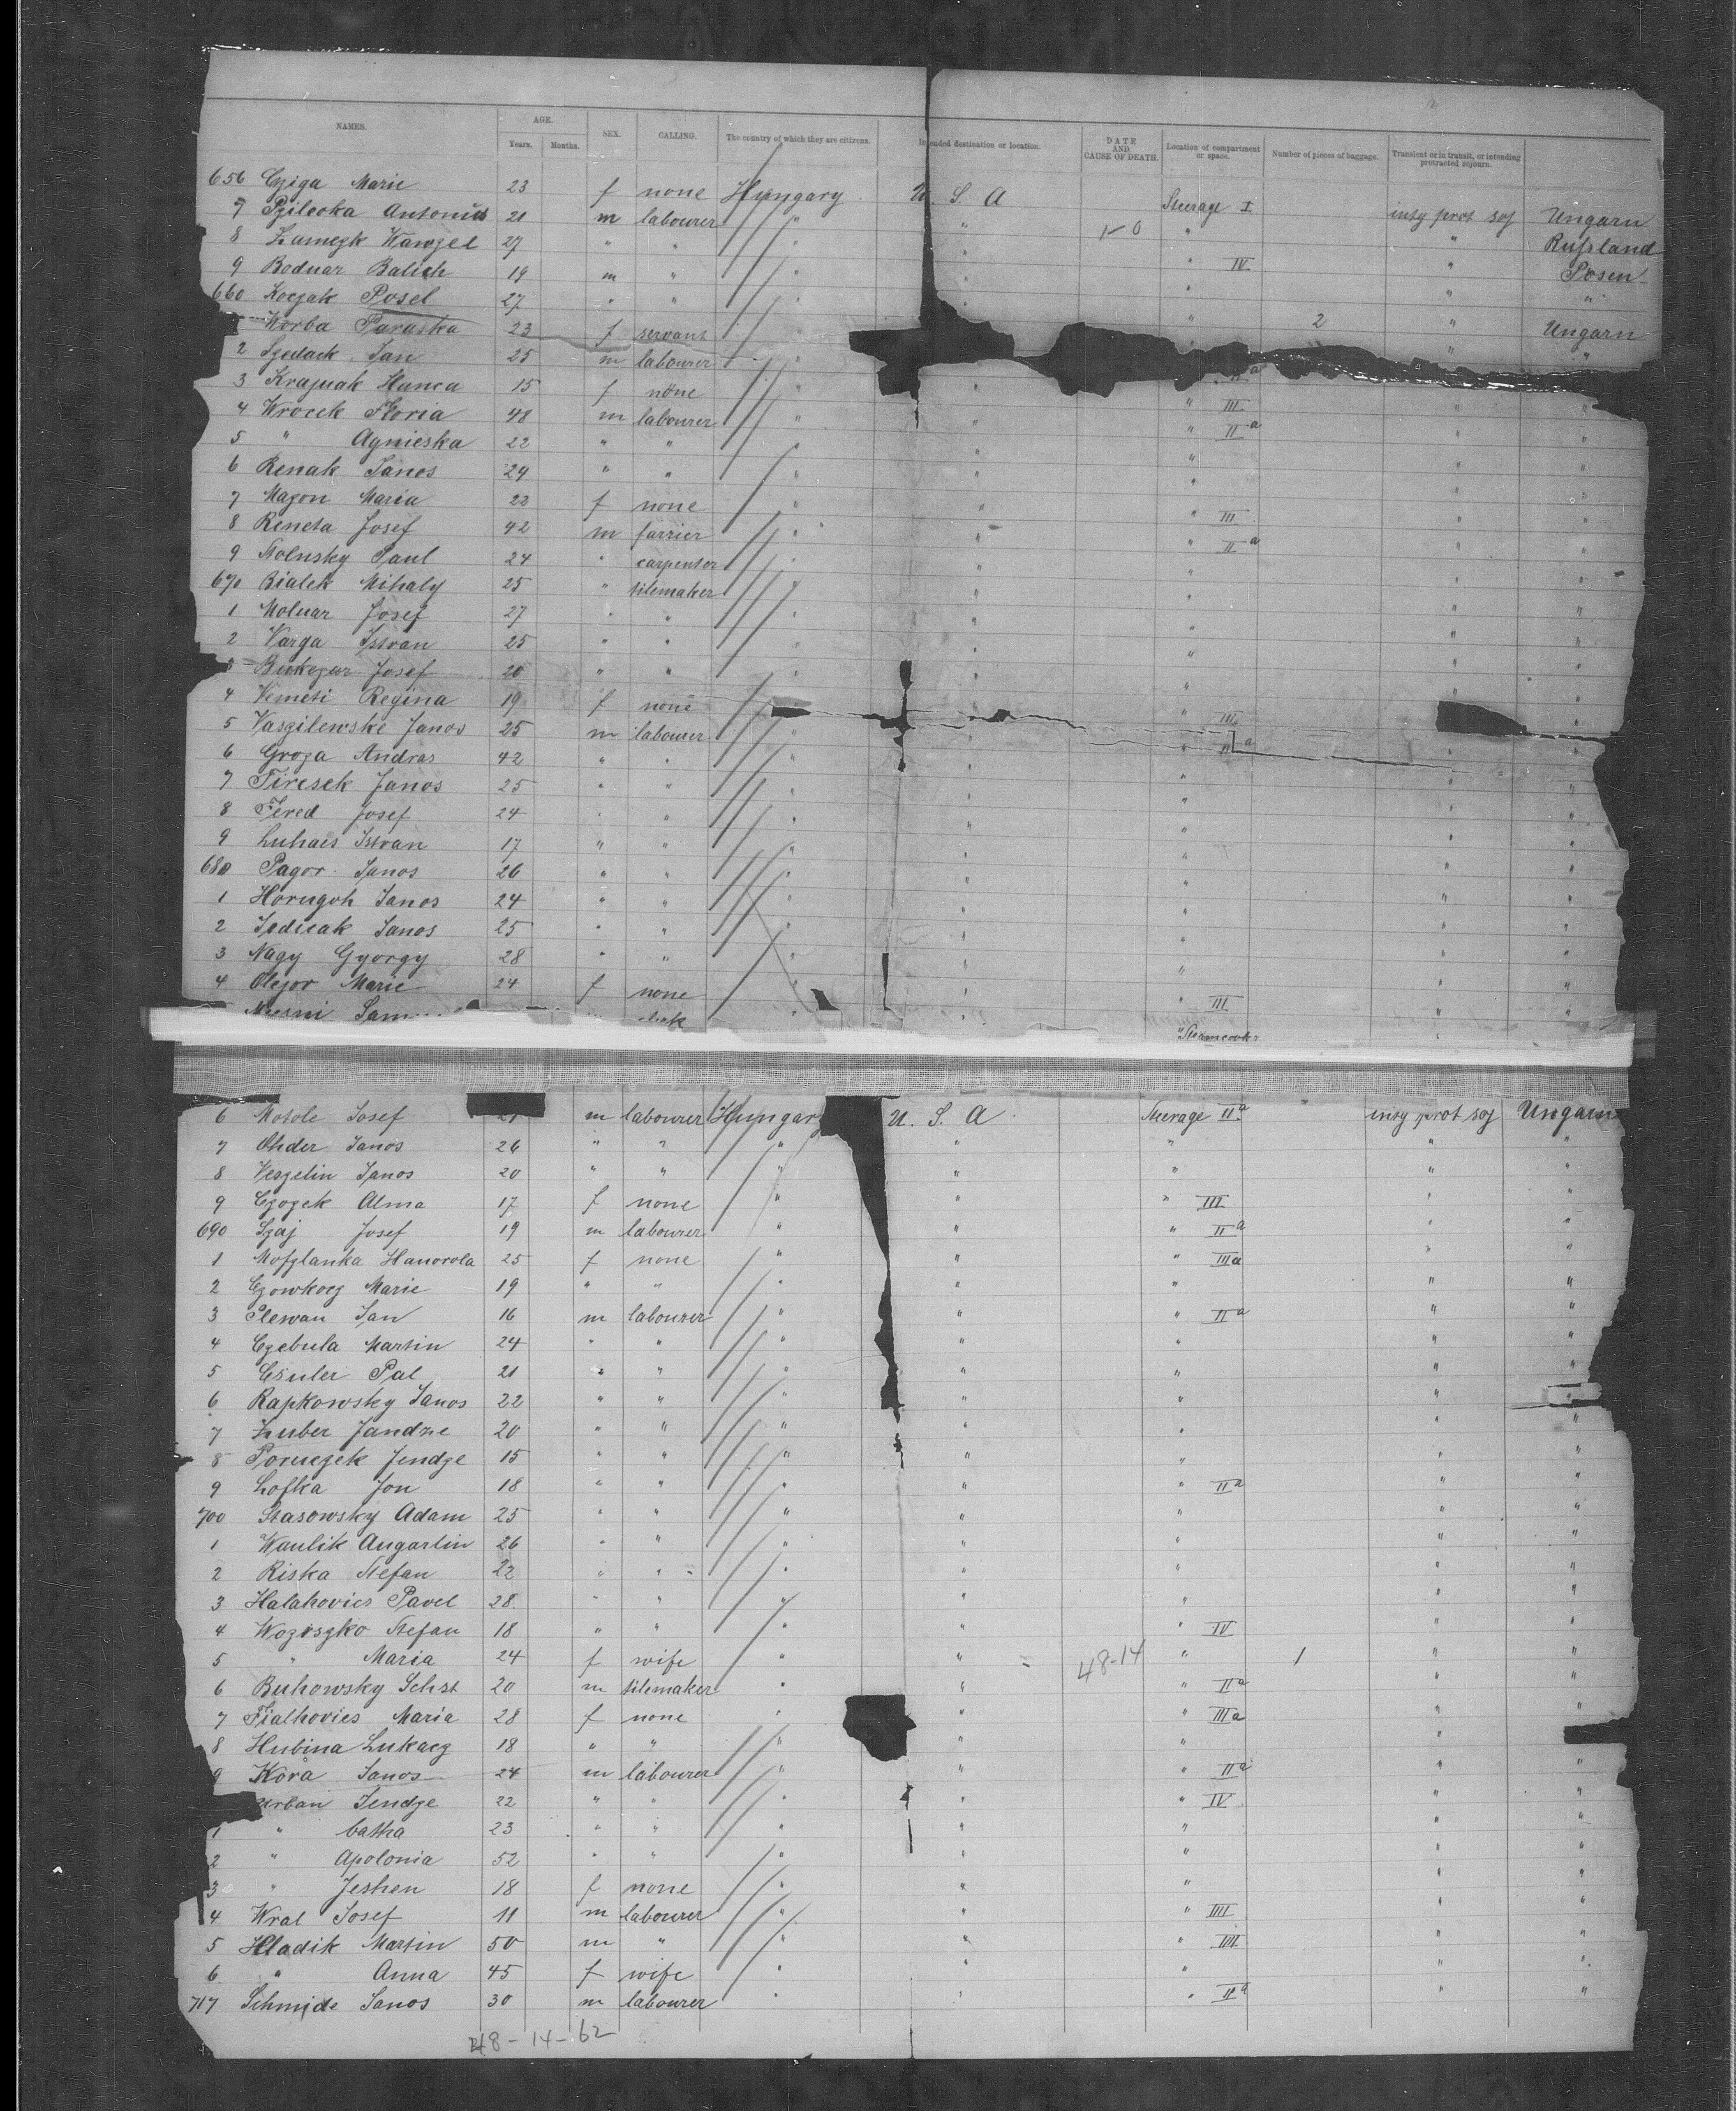 2
NAMES. AGE. SEX. CALLING. The country of which they are citizens. Intended destination or location. DATE AND CAUSE OF DEATH. Location of compartment or space. Number of pieces of baggage. Transient or in transit, or intending protracted sojourn.
Years. Months.
656 Cziga Marie 23 f none Hungary U. S. A Steerage I intg prot soj Ungarn
7 Antonius 21 m labourer " " " " Russland
8 27 " " " " " IV " Posen
9 Bodnar 19 m " " " " " "
660 Koczak Posel 27 " " " " " 2 " Ungarn
Worba Paraska 23 f servant " " "
2 Szedlack Jan 25 m labourer " " IIa
3 Krajnak Hanca 15 f none " " " III " "
4 Wrocek Floria 48 m labourer " " " IIa " "
5 " Agnieska 22 " " " " " " "
6 Renak Janos 24 " " " " " " "
7 Mazon Maria 22 f none " " " III " "
8 Reneta Josef 42 m farrier " " " IIa " "
9 Stolnsky Paul 24 " carpenter " " " " "
670 Bialek Mihaly 25 " tilemaker " " " " "
1 Molnar Josef 27 " " " " " " "
2 Varga Istvan 25 " " " " " " "
3 Josef 20 " " " " " " "
4 Nemeti Regina 19 f none " " " III "
5 Vaszilewske Janos 25 m labourer " " " IIa " "
6 Groza Andras 42 " " " " " " "
7 Tircsek Janos 25 " " " " " " "
8 Fered Josef 24 " " " " " " "
9 Luhacs Istvan 17 " " " " " " "
680 Pagor Janos 26 " " " " " " "
1 Horngoh Janos 24 " " " " " " "
2 Jedicak Janos 25 " " " " " " "
3 Nagy Gyorgy 28 " " " " " " "
4 Olejor Marie 24 f none " " " III " "
" Steamcook "
6 Motole Josef 21 m labourer Hungary U. S. A Steerage IIa intg prot soj Ungarn
7 Ohder Janos 26 " " " " " " "
8 Veszelin Janos 20 " " " " " " "
9 Czozek Alma 17 f none " " " III " "
690 Szaj Josef 19 m labourer " " " IIa " "
1 Moszlanka Hanorola 25 f none " " " IIIa " "
2 Czowkocz Marie 19 " " " " " " "
3 Plewan Jan 16 m labourer " " " IIa " "
4 Czebula Martin 24 " " " " " " "
5 Csuler Pal 21 " " " " " " "
6 Rapkowsky Janos 22 " " " " " " "
7 Luber Jandze 20 " " " " " " "
8 Poruczek Jendze 15 " " " " " " "
9 Lofka Jon 18 " " " " " IIa " "
700 Stasowsky Adam 25 " " " " " " "
1 Waulik Augarlin 26 " " " " " " "
2 Riska Stefan 22 " " " " " " "
3 Halahovics Pavel 28 " " " " " " "
4 Wozoszko Stefan 18 " " " " " IV " "
5 " Maria 24 f wife " " 48-14 " 1 " "
6 Buhowsky Schst 20 m tilemaker " " " IIa " "
7 Fialhovics Maria 28 f none " " " IIIa " "
8 Hubina Lukacz 18 " " " " " "
9 Kora Janos 24 m labourer " " " IIa " "
Urban Jendze 22 " " " " " IV " "
1 " Catha 23 " " " " " " "
2 " Apolonia 52 " " " " " " "
3 " Jeshen 18 f none " " " " "
4 Wral Josef 11 m labourer " " " IIII " "
5 Hladik Martin 50 m " " " " IIII " "
6 " Anna 45 f wife " " " " "
717 Schmide Janos 30 m labourer " " " IIa " "
48-14-62